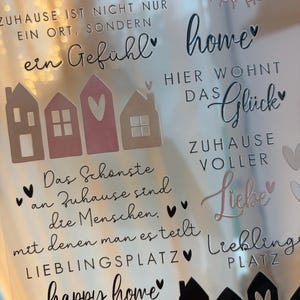 ZUHAUSE IST NICHT NUR
EIN ORT, SONDERN
ein Gefühl
home
HIER WOHNT
DAS Glück
ZUHAUSE
VOLLER
Liebe
Das Schönste
an Zuhause sind
die Menschen,
mit denen man es teilt
LIEBLINGSPLATZ
happy home
Lieblings
PLATZ